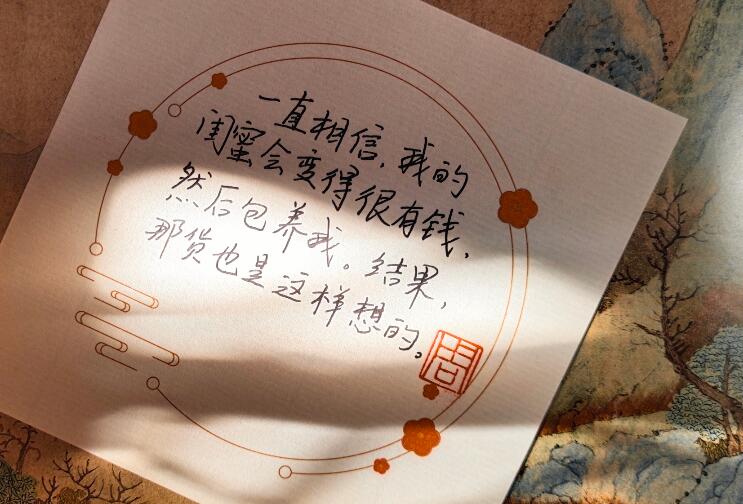 一直相信，我的
闺蜜会变得很有钱，
然后包养我。结果，
那货也是这样想的。
周